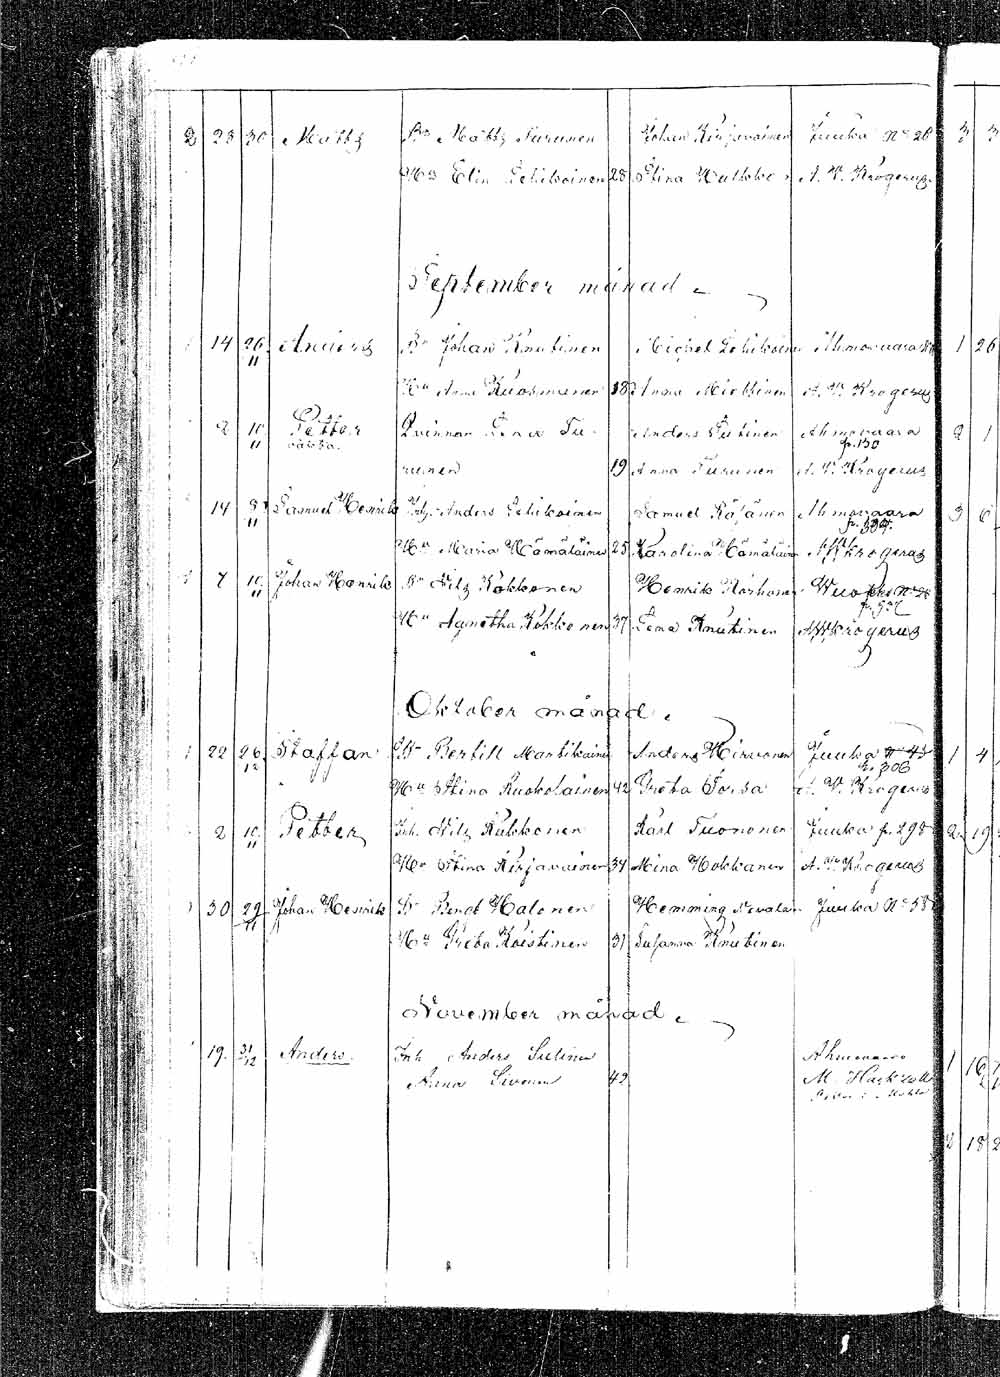 2 23 30 Matts Bn Matts Turunen Johan Kirjavainen Juuka No 26 3 3
Hu Elin Lehikoinen 28 Stina Hukko A. V. Krogerus
September månad
14 26/11 Anders Bn Johan Knutinen Michel Lehikoinen Ahmovaara 1 26
Hu Anna Kuosmanen 18 Anna Miettinen A. V. Krogerus
2 10/11 Petter Qvinnan Lena Tu- Anders Ahmovaara 2 1
oäkta. p. 130
runen 19 Anna Turunen A. V. Krogerus
14 Samuel Henrik Inh. Anders Lehikoinen Samuel Räsänen Ahmovaara 3 6
Hu Maria Hämäläinen 25 Karolina Hämäläin AWKrogerus
7 10/11 Johan Henrik Bn Nils Kokkonen Henrik Korhonen
Hu Agnetha Kokkonen 37 Lena Knutinen AWKrogerus
Oktober månad.
1 22 26/12 Staffan Bn Bertill Martikainen Anders Hirvonen Juuka 45 1 4
306
Hu Stina Ruokolainen 42 Greta Torsa A. V. Krogerus
2 10/11 Petter Inh. Nils Kukkonen Karl Tuononen Juuka p. 298 2 19
Hu Stina Kirjavainen 34 Mina Hokkanen A. V. Krogerus
30 29/11 Johan Henrik Bn Bengt Halonen Hemming Nevalain Juuka No 58
Hu Greta Koistinen 31 Susanna Knutinen
November månad.
19. 31/12 Anders. Inh Anders Sutinen Ahmovaara 1 16
Anna Sivonen 42 M. Hackzell
2 18 2